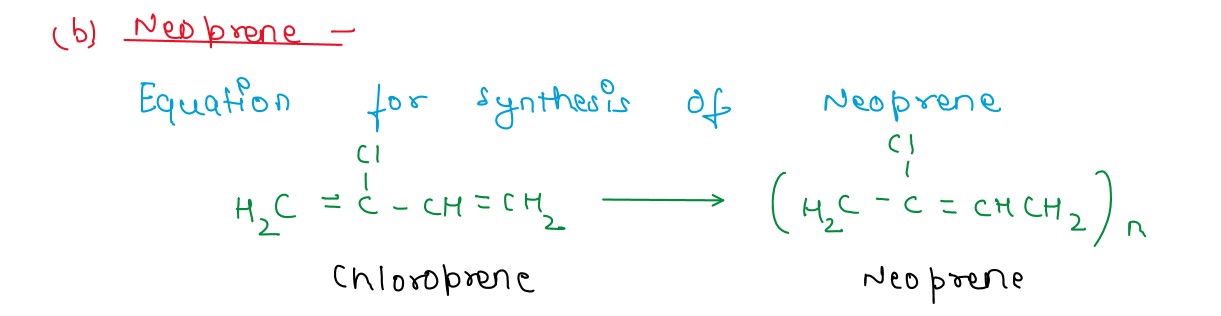 (b) Neoprene -
Equation for synthesis of Neoprene
Cl Cl
H₂C = C - CH = CH₂ ⟶ (H₂C - C = CHCH₂)n
Chloroprene Neoprene